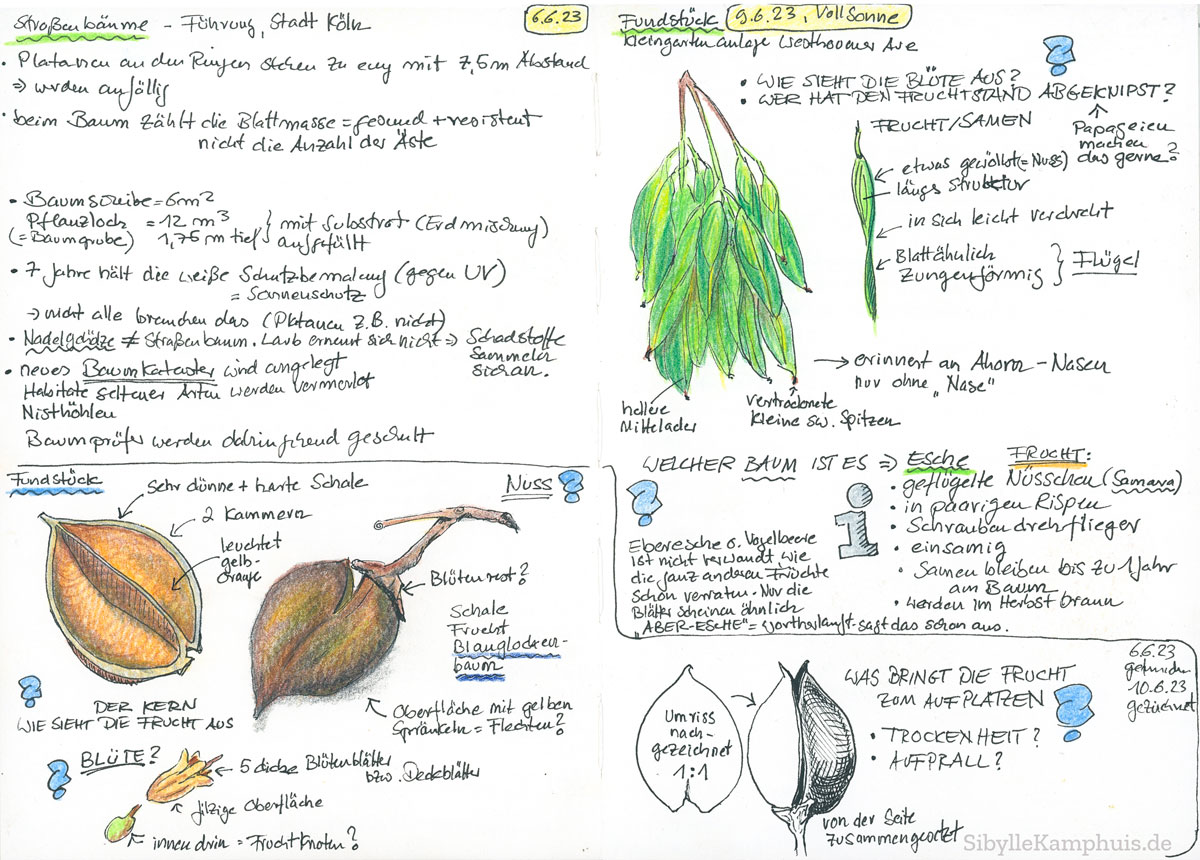 Straßenbäume – Führung, Stadt Köln
6.6.23
• Platanen an den Ringen stehen zu eng mit 7,5m Abstand
⇒ werden anfällig
• beim Baum zählt die Blattmasse = gesund + resistent
nicht die Anzahl der Äste
• Baumscheibe = 6m²
Pflanzloch = 12 m³ } mit Substrat (Erdmischung)
(= Baumgrube) 1,75 m tief } aufgefüllt
• 7 Jahre hält die weiße Schutzbemalung (gegen UV)
= Sonnenschutz
→ nicht alle brauchen das (Platanen z.B. nicht)
• Nadelgehölze ≠ Straßenbaum. Laub erneut sich nicht ⇒ Schadstoffe
sammeln
sich an.
• neues Baumkataster wird angelegt
Habitate seltener Arten werden vermerkt
Nisthöhlen
Baumprüfer werden dahingehend geschult
Fundstück
sehr dünne + harte Schale
Nuss
2 Kammern
leuchtet
gelb-
orange
Blütenrest?
Schale
Frucht
Blauglocken-
baum
DER KERN
WIE SIEHT DIE FRUCHT AUS
?
Oberfläche mit gelben
Sprenkeln = Flechten?
BLÜTE?
5 dicke Blütenblätter
bzw. Deckblätter
filzige Oberfläche
innen drin = Fruchtknoten?
Fundstück
9.6.23, Vollsonne
Kleingartenanlage Westhovener Aue
• WIE SIEHT DIE BLÜTE AUS?
• WER HAT DEN FRUCHTSTAND ABGEKNIPST?
Papageien
machen
das gerne?
FRUCHT/SAMEN
etwas gewölbt (= Nuss)
längs Struktur
in sich leicht verdreht
Blattähnlich
zungenförmig } Flügel
→ erinnert an Ahorn – Nasen
nur ohne „Nase"
hellere
Mittelader
vertrocknete
kleine sw. Spitzen
WELCHER BAUM IST ES ⇒ Esche
FRUCHT:
• geflügelte Nüsschen (Samara)
• in paarigen Rispen
• Schraubendrehflieger
• einsamig
• Samen bleiben bis zu 1 Jahr
am Baum
• werden im Herbst braun
i
Eberesche o. Vogelbeere
ist nicht verwandt wie
die ganz anderen Früchte
schon verraten. Nur die
Blätter scheinen ähnlich
„ABER-ESCHE" = Wortherkunft sagt das schon aus.
6.6.23
gefunden
10.6.23
gezeichnet
WAS BRINGT DIE FRUCHT
ZUM AUFPLATZEN
?
• TROCKENHEIT?
• AUFPRALL?
Umriss
nach-
gezeichnet
1:1
von der Seite
zusammengesetzt
SibylleKamphuis.de